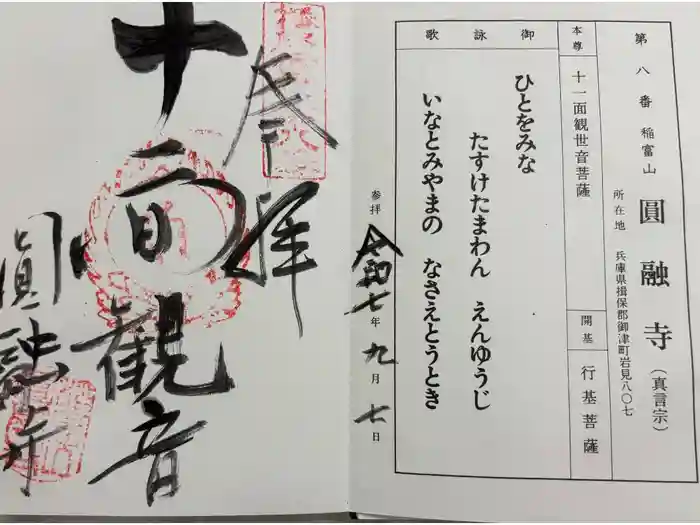 第八番 稲富山 圓融寺(真言宗)
所在地 兵庫県揖保郡御津町岩見八〇七
本尊 十一面観世音菩薩
開基 行基菩薩
御詠歌
ひとをみな
たすけたまわん えんゆうじ
いなとみやまの なさえとうとき
参拝 令和七年九月七日
奉拝
十一面觀音
圓融寺